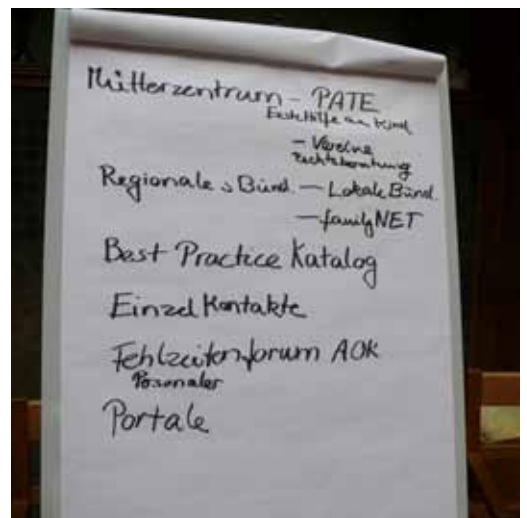 Mütterzentrum - PATE
Erste Hilfe am Kind
- Vereine
Rechtsberatung
Regionales Bünd. — Lokale Bünd.
— familyNET
Best Practice Katalog
Einzel Kontakte
Fehlzeitenforum AOK
Personaler
Portale